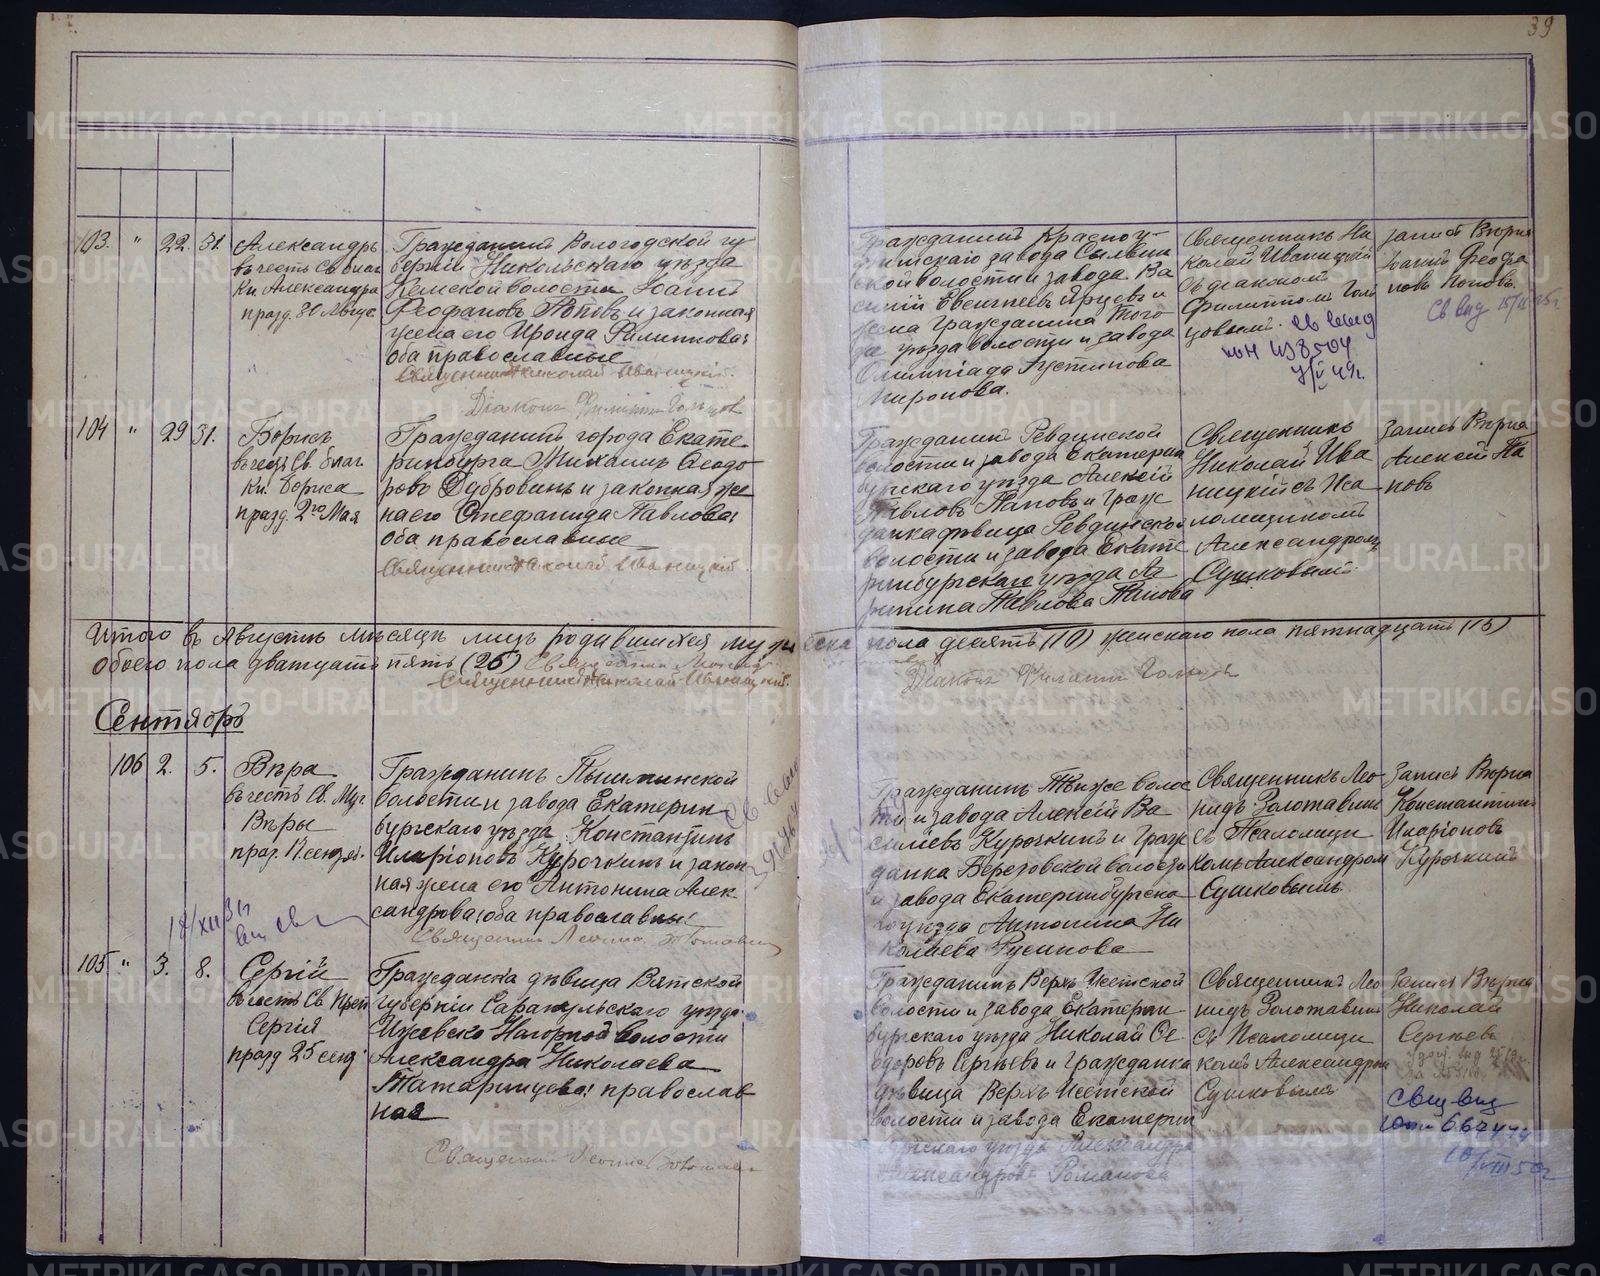 39
103. " 22. 31.
Александръ
въ честь Св. благ.
Кн. Александра
празд. 30 Август.
Гражданинъ Вологодской гу
берніи Никольскаго уѣзда
Кемской волости Іоаннъ
Феофановъ Поповъ и законная
жена его Ироида Филиппова;
оба православные
Священникъ Николай Иваницкій.
Діаконъ Филиппъ Гольцов
Гражданинъ Красноу-
фимскаго завода Сылвин
ской волости и завода Ва
силій Евсигнеевъ Ярусовъ и
жена Гражданина того
же уѣзда волости и завода
Олимпіада Аустинова
Миронова.
Священникъ Ни
колай Иваницкій
съ діакономъ
Филиппомъ Голь
цовымъ.
запись Вѣрна
Іоаннъ Феофа
новъ Поповъ.
104 " 29 31.
Борисъ
въ честь Св. благ.
Кн. Бориса
празд. 2го Мая
Гражданинъ города Екате-
ринбурга Михаилъ Ѳеодо
ровъ Дубровинъ и законная же
на его Стефанида Павлова;
оба православные
Священникъ Николай Иваницкій.
Гражданинъ Ревдинской
волости и завода Екатерин
бургскаго уѣзда Алексій
Павловъ Паповъ и Граж
данка дѣвица Ревдинской
волости и завода Екате
ринбургскаго уѣзда Аг
рипина Павлова Папова
Священникъ
Николай Ива
ницкій съ Пса
ломщикомъ
Александромъ
Сушковымъ
Запись Вѣрна
Алексѣй Па
повъ
Итого въ Августѣ мѣсяцѣ лицъ родившихся мужеска пола десять (10) женскаго пола пятнадцать (15)
обоего пола двадцать пять (25)
Священникъ Николай Иваницкій.
Діаконъ Филиппъ Гольцовъ
Сентябрь
106 2. 5.
Вѣра
въ честь Св. Муч.
Вѣры
праз. 17 сентяб.
Гражданинъ Пышминской
волости и завода Екатерин-
бургскаго уѣзда Константинъ
Иларіоновъ Курочкинъ и закон
ная жена его Антонина Алек
сандрова; оба православны!
Священникъ Леонид Золотавин
Гражданинъ Той же волос
ти и завода Алексій Ва
силіевъ Курочкинъ и Граж
данка Березовской волости
и завода Екатеринбургска
го уѣзда Антонина Ни
колаева Русинова
Священникъ Лео-
нидъ Золотавинъ
съ Псаломщи
комъ Александромъ
Сушковымъ
Запись Вѣрна
Константинъ
Иларіоновъ
Курочкинъ
105 " 3. 8.
Сергій
въ честь Св. Преп.
Сергія
празд 25 сент.
Гражданка дѣвица Вятской
губерніи Сарапульскаго уѣзда
Ижевско Нагорной волости
Александра Николаева
Татаринцева; православ
ная
Священникъ Леонид Золотавин
Гражданинъ Верхъ Исетской
волости и завода Екатерин
бургскаго уѣзда Николай Ѳе
одоровъ Сергѣевъ и Гражданка
дѣвица Верхъ Исетской
волости и завода Екатерин
бургскаго уѣзда Александра
Александрова Романова
Священникъ Лео
нидъ Золотавинъ
съ Псаломщи
комъ Александромъ
Сушковымъ
Запись Вѣрна
Николай
Сергѣевъ